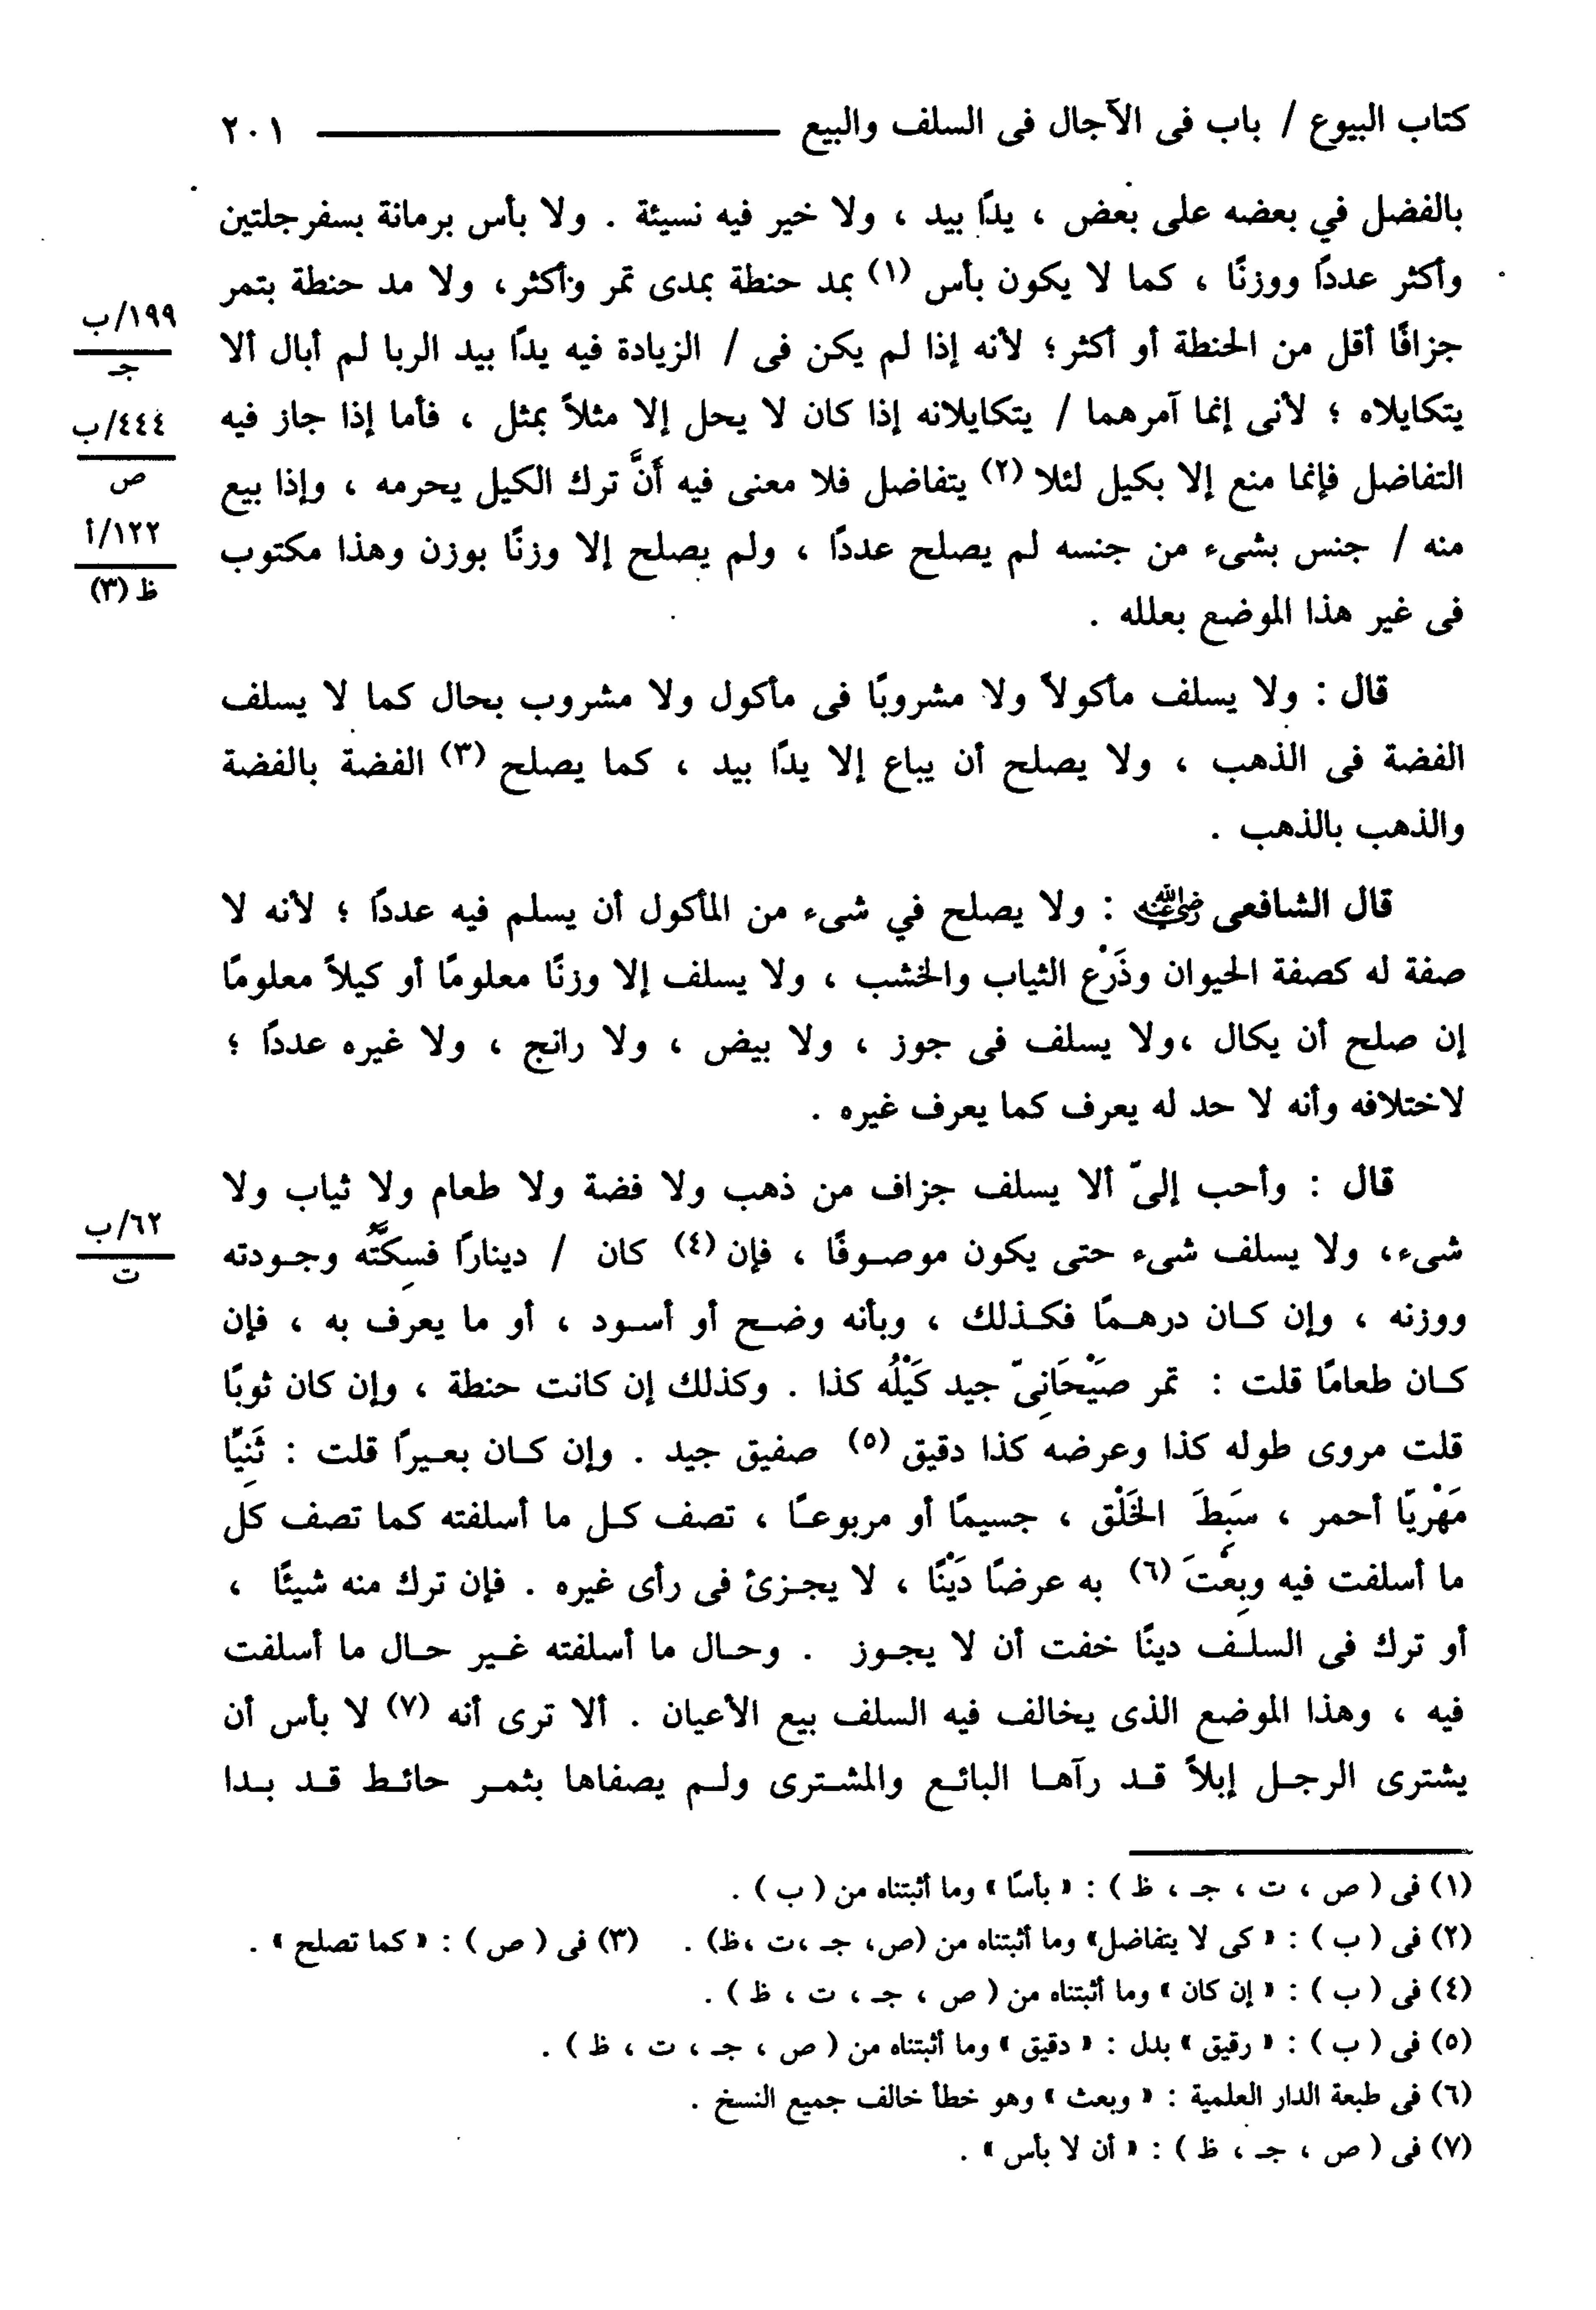 كتاب البيوع / باب فى الآجال فى السلف والبيع ـــــــ ٢٠١
بالفضل في بعضه على بعض ، يدًا بيد ، ولا خير فيه نسيئة . ولا بأس برمانة بسفرجلتين
وأكثر عددًا ووزنًا ، كما لا يكون بأس (١) بمد حنطة بمدى تمر وأكثر، ولا مد حنطة بتمر
١٩٩/ب
جـ
جزافًا أقل من الحنطة أو أكثر؛ لأنه إذا لم يكن فى / الزيادة فيه يدًا بيد الربا لم أبال ألا
٤٤٤/ب
ص
يتكايلاه ؛ لأنى إنما آمرهما / يتكايلانه إذا كان لا يحل إلا مثلاً بمثل ، فأما إذا جاز فيه
التفاضل فإنما منع إلا بكيل لئلا (٢) يتفاضل فلا معنى فيه أَنَّ ترك الكيل يحرمه ، وإذا بيع
١٢٢/أ
ظ (٣)
منه / جنس بشىء من جنسه لم يصلح عددًا ، ولم يصلح إلا وزنًا بوزن وهذا مكتوب
فى غير هذا الموضع بعلله .
قال : ولا يسلف مأكولاً ولا مشروبًا فى مأكول ولا مشروب بحال كما لا يسلف
الفضة فى الذهب ، ولا يصلح أن يباع إلا يدًا بيد ، كما يصلح (٣) الفضة بالفضة
والذهب بالذهب .
قال الشافعى رضي الله عنه : ولا يصلح في شىء من المأكول أن يسلم فيه عددًا ؛ لأنه لا
صفة له كصفة الحيوان وذَرْع الثياب والخشب ، ولا يسلف إلا وزنًا معلومًا أو كيلاً معلومًا
إن صلح أن يكال ،ولا يسلف فى جوز ، ولا بيض ، ولا رانج ، ولا غيره عددًا ؛
لاختلافه وأنه لا حد له يعرف كما يعرف غيره .
قال : وأحب إلىّ ألا يسلف جزاف من ذهب ولا فضة ولا طعام ولا ثياب ولا
٦٢/ب
ت
شىء، ولا يسلف شىء حتى يكون موصوفًا ، فإن (٤) كان / دينارًا فسِكَّتُه وجودته
ووزنه ، وإن كان درهمًا فكذلك ، وبأنه وضح أو أسود ، أو ما يعرف به ، فإن
كان طعامًا قلت : تمر صَيْحَانِىّ جيد كَيْلُه كذا . وكذلك إن كانت حنطة ، وإن كان ثوبًا
قلت مروى طوله كذا وعرضه كذا دقيق (٥) صفيق جيد . وإن كان بعيرًا قلت : ثَنِيًّا
مَهْريًا أحمر ، سَبِطَ الخَلْق ، جسيمًا أو مربوعًا ، تصف كل ما أسلفته كما تصف كل
ما أسلفت فيه وبِعْتَ (٦) به عرضًا دَيْنًا ، لا يجزئ فى رأى غيره . فإن ترك منه شيئًا ،
أو ترك فى السلف دينًا خفت أن لا يجوز . وحال ما أسلفته غير حال ما أسلفت
فيه ، وهذا الموضع الذى يخالف فيه السلف بيع الأعيان . ألا ترى أنه (٧) لا بأس أن
يشترى الرجل إبلاً قد رآها البائع والمشترى ولم يصفاها بثمر حائط قد بدا
(١) فى ( ص ، ت ، جـ ، ظ ) : « بأسًا » وما أثبتناه من ( ب ) .
(٢) فى ( ب ) : « كى لا يتفاضل» وما أثبتناه من (ص، جـ ،ت ،ظ) . (٣) فى ( ص ) : « كما تصلح » .
(٤) فى ( ب ) : « إن كان » وما أثبتناه من ( ص ، جـ ، ت ، ظ ) .
(٥) فى ( ب ) : « رقيق » بدل : « دقيق » وما أثبتناه من ( ص ، جـ ، ت ، ظ ) .
(٦) فى طبعة الدار العلمية : « وبعث » وهو خطأ خالف جميع النسخ .
(٧) فى ( ص ، جـ ، ظ ) : « أن لا بأس » .